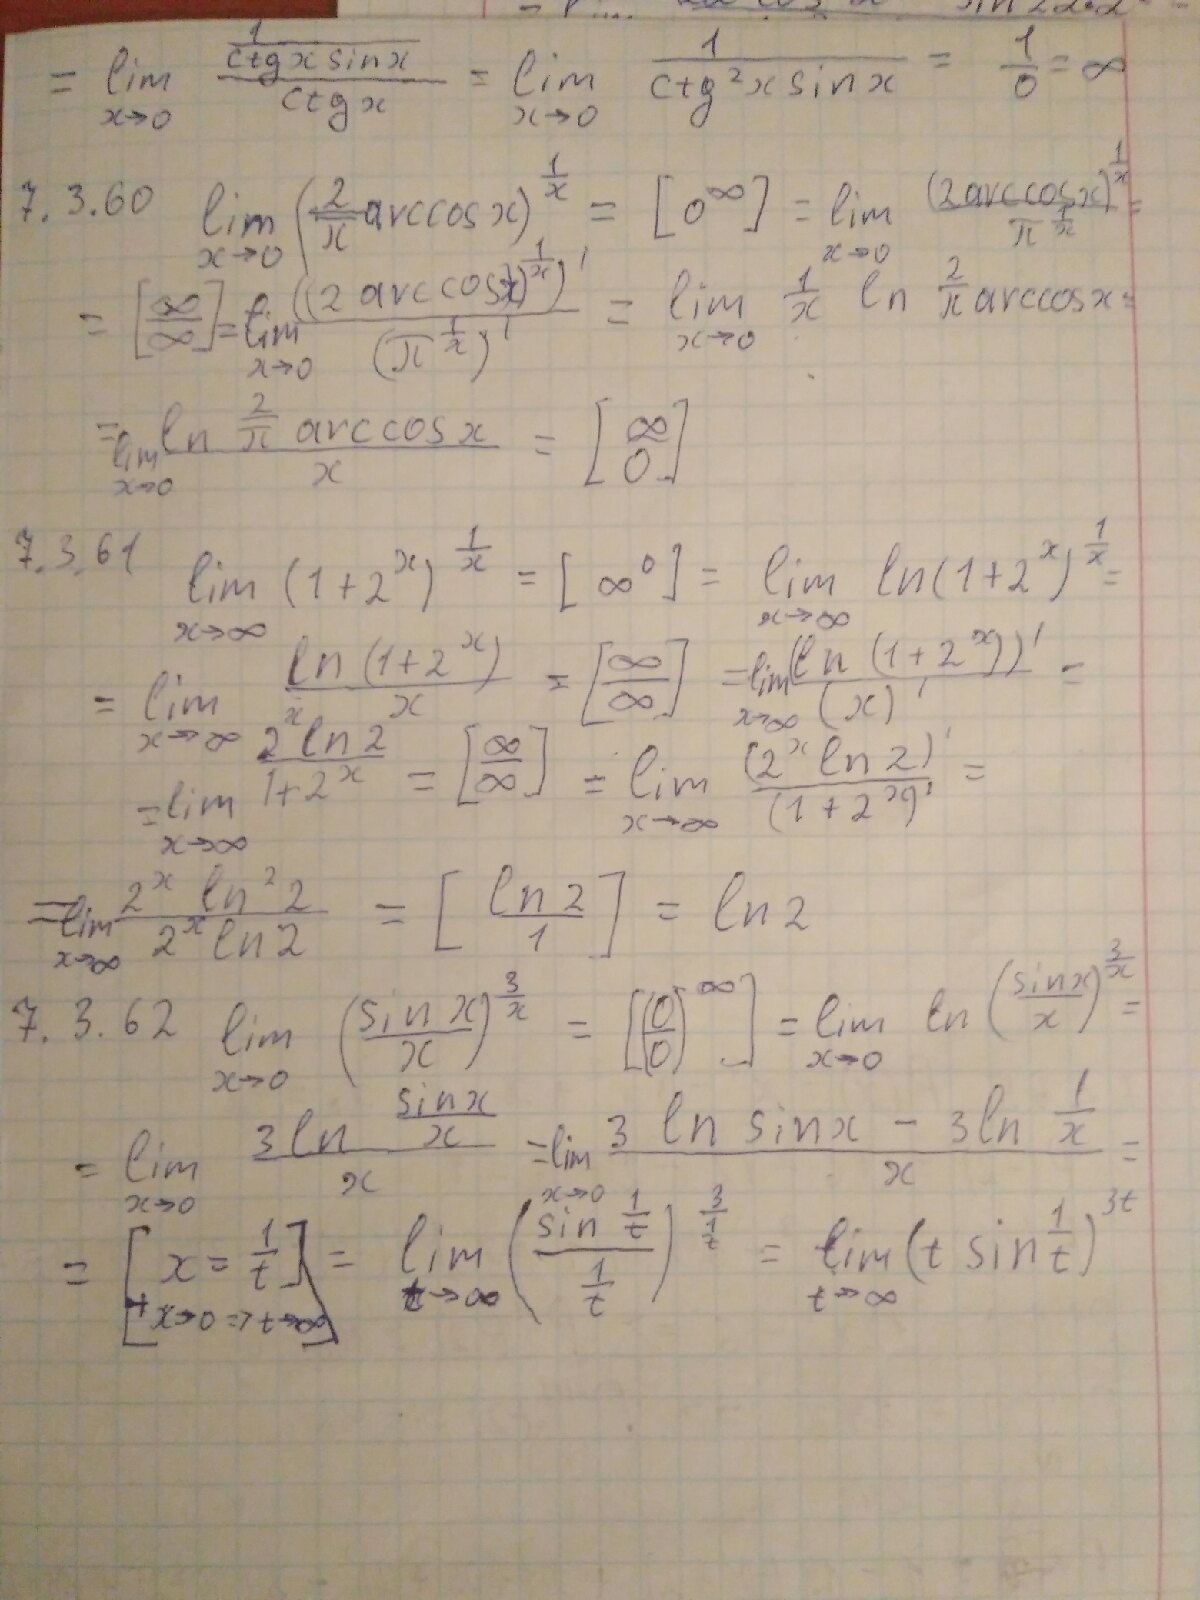 = lim x→0 (1/(ctg x sin x))/(ctg x) = lim x→0 1/(ctg²x sin x) = 1/0 = ∞
7.3.60 lim x→0 (2/π arccos x)^(1/x) = [0^∞] = lim x→0 (2 arccos x)^(1/x)/π^(1/x) =
= [∞/∞] = lim x→0 ((2 arccos x)^(1/x))'/(π^(1/x))' = lim x→0 1/x ln 2/π arccos x =
= lim x→0 (ln 2/π arccos x)/x = [∞/0]
7.3.61 lim x→∞ (1+2^x)^(1/x) = [∞^0] = lim x→∞ ln(1+2^x)^(1/x) =
= lim x→∞ ln(1+2^x)/x = [∞/∞] = lim x→∞ (ln(1+2^x))'/(x)' =
= lim x→∞ (2^x ln 2)/(1+2^x) = [∞/∞] = lim x→∞ (2^x ln 2)'/(1+2^x)' =
= lim x→∞ (2^x ln²2)/(2^x ln 2) = [ln 2/1] = ln 2
7.3.62 lim x→0 (sin x/x)^(3/x) = [(0/0)^∞] = lim x→0 ln (sin x/x)^(3/x) =
= lim x→0 (3 ln sin x/x)/x = lim x→0 (3 ln sin x - 3 ln 1/x)/x =
= [x = 1/t x→0 => t→∞] = lim t→∞ ((sin 1/t)/(1/t))^(3/(1/t)) = lim t→∞ (t sin 1/t)^(3t)